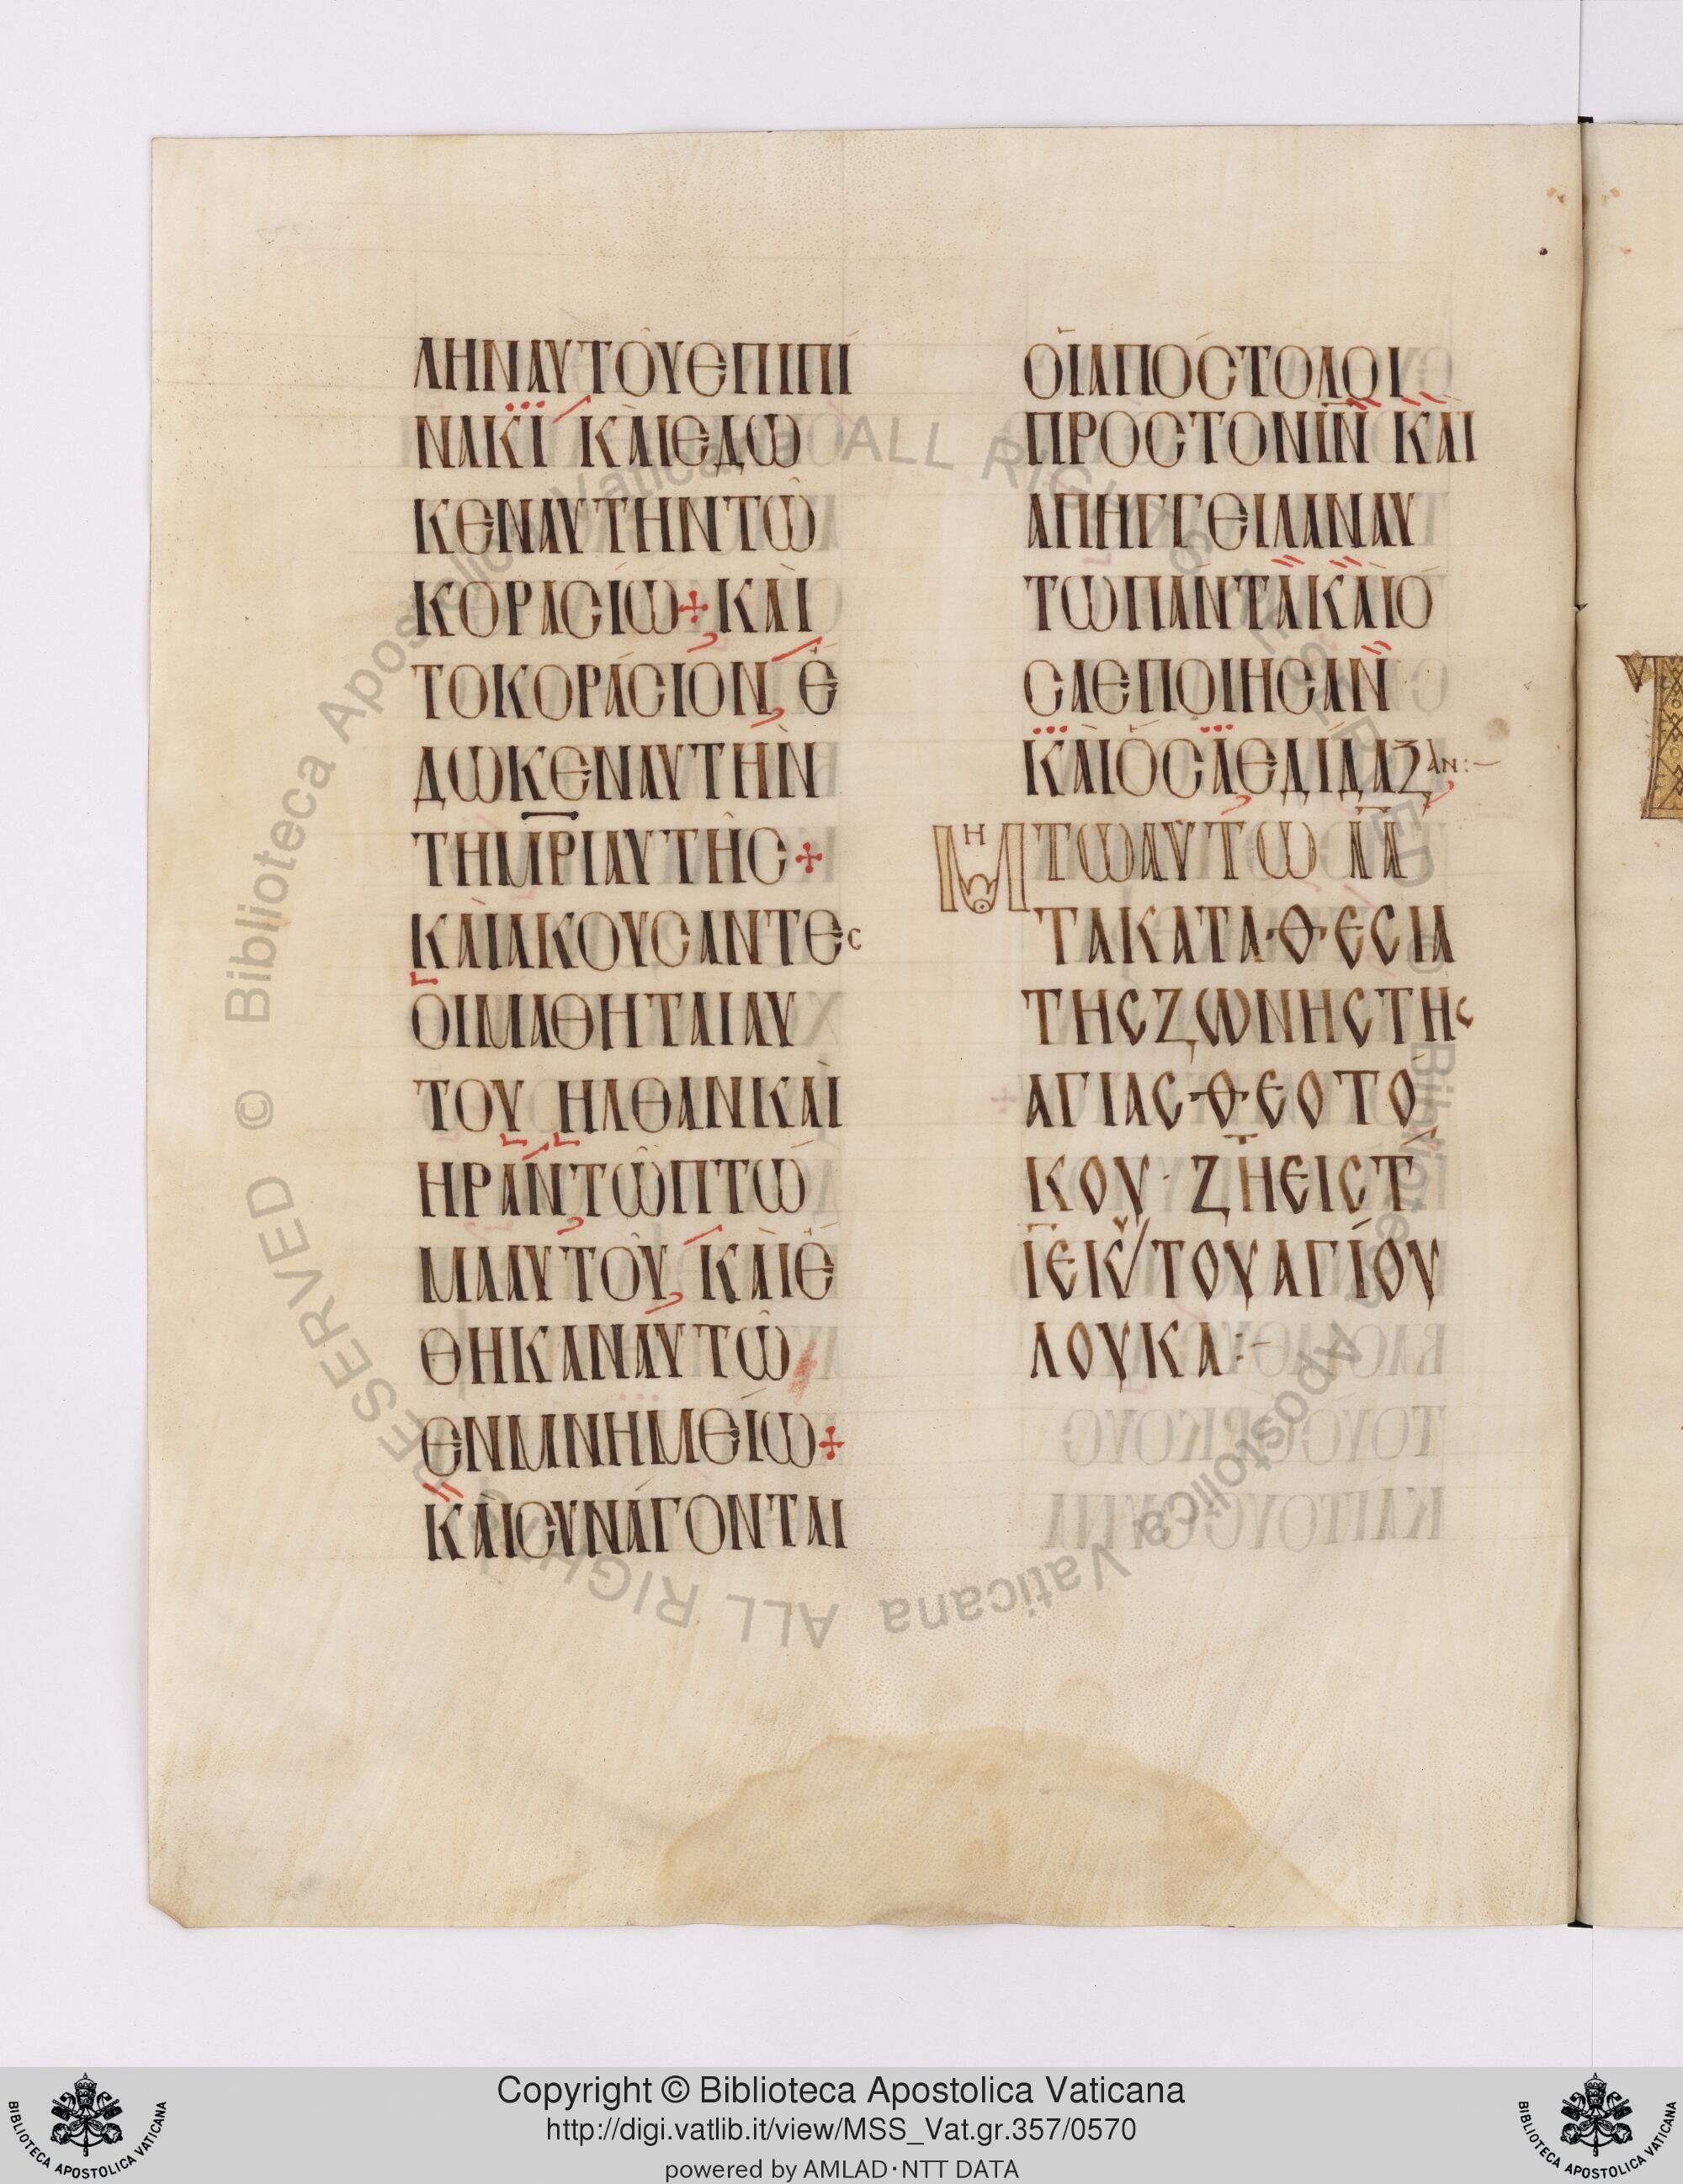 ΛΗΝΑΥΤΟῦΕΠΙΠΙ
ΝΑΚΙ ΚΑΙΕΔΩ
ΚΕΝΑΥΤΗΝΤΩ
ΚΟΡΑCΙΩ+ΚΑΙ
ΤΟΚΟΡΑCΙΟΝ Ε
ΔΩΚΕΝΑΥΤΗΝ
ΤΗΜ̅Ρ̅ΙΑΥΤΗC+
ΚΑΙΑΚΟΥCΑΝΤΕC
ΟΙΜΑΘΗΤΑΙΑΥ
ΤΟΥ ΗΛΘΑΝΚΑΙ
ΗΡΑΝΤΩΠΤΩ
ΜΑΑΥΤΟΥ ΚΑΙΕ
ΘΗΚΑΝΑΥΤΩ
ΕΝΜΝΗΜΕΙΩ+
ΚΑΙCΥΝΑΓΟΝΤΑΙ
ΟΙΑΠΟCΤΟΛΟΙ
ΠΡΟCΤΟΝΙ̅Ν̅ ΚΑΙ
ΑΠΗΓΓΕΙΛΑΝΑΥ
ΤΩΠΑΝΤΑΚΑΙΟ
CΑΕΠΟΙΗCΑΝ
ΚΑΙΟCΑΕΔΙΔΑΞΑΝ:–
ΜΗ ΤΩΑΥΤΩ Λ̅Α̅
ΤΑΚΑΤΑΘΕCΙΑ
ΤΗCΖΩΝΗCΤΗC
ΑΓΙΑCΘΕΟΤΟ
ΚΟΥ· ΖΗΕΙCΤ
ΙΕΚ/ΤΟΥΑΓΙΟΥ
ΛΟΥΚΑ:–
© Biblioteca Apostolica Vaticana ALL RIGHTS RESERVED
© Biblioteca Apostolica Vaticana ALL RIGHTS RESERVED
Copyright © Biblioteca Apostolica Vaticana
http://digi.vatlib.it/view/MSS_Vat.gr.357/0570
powered by AMLAD·NTT DATA
BIBLIOTECA APOSTOLICA VATICANA
BIBLIOTECA APOSTOLICA VATICANA